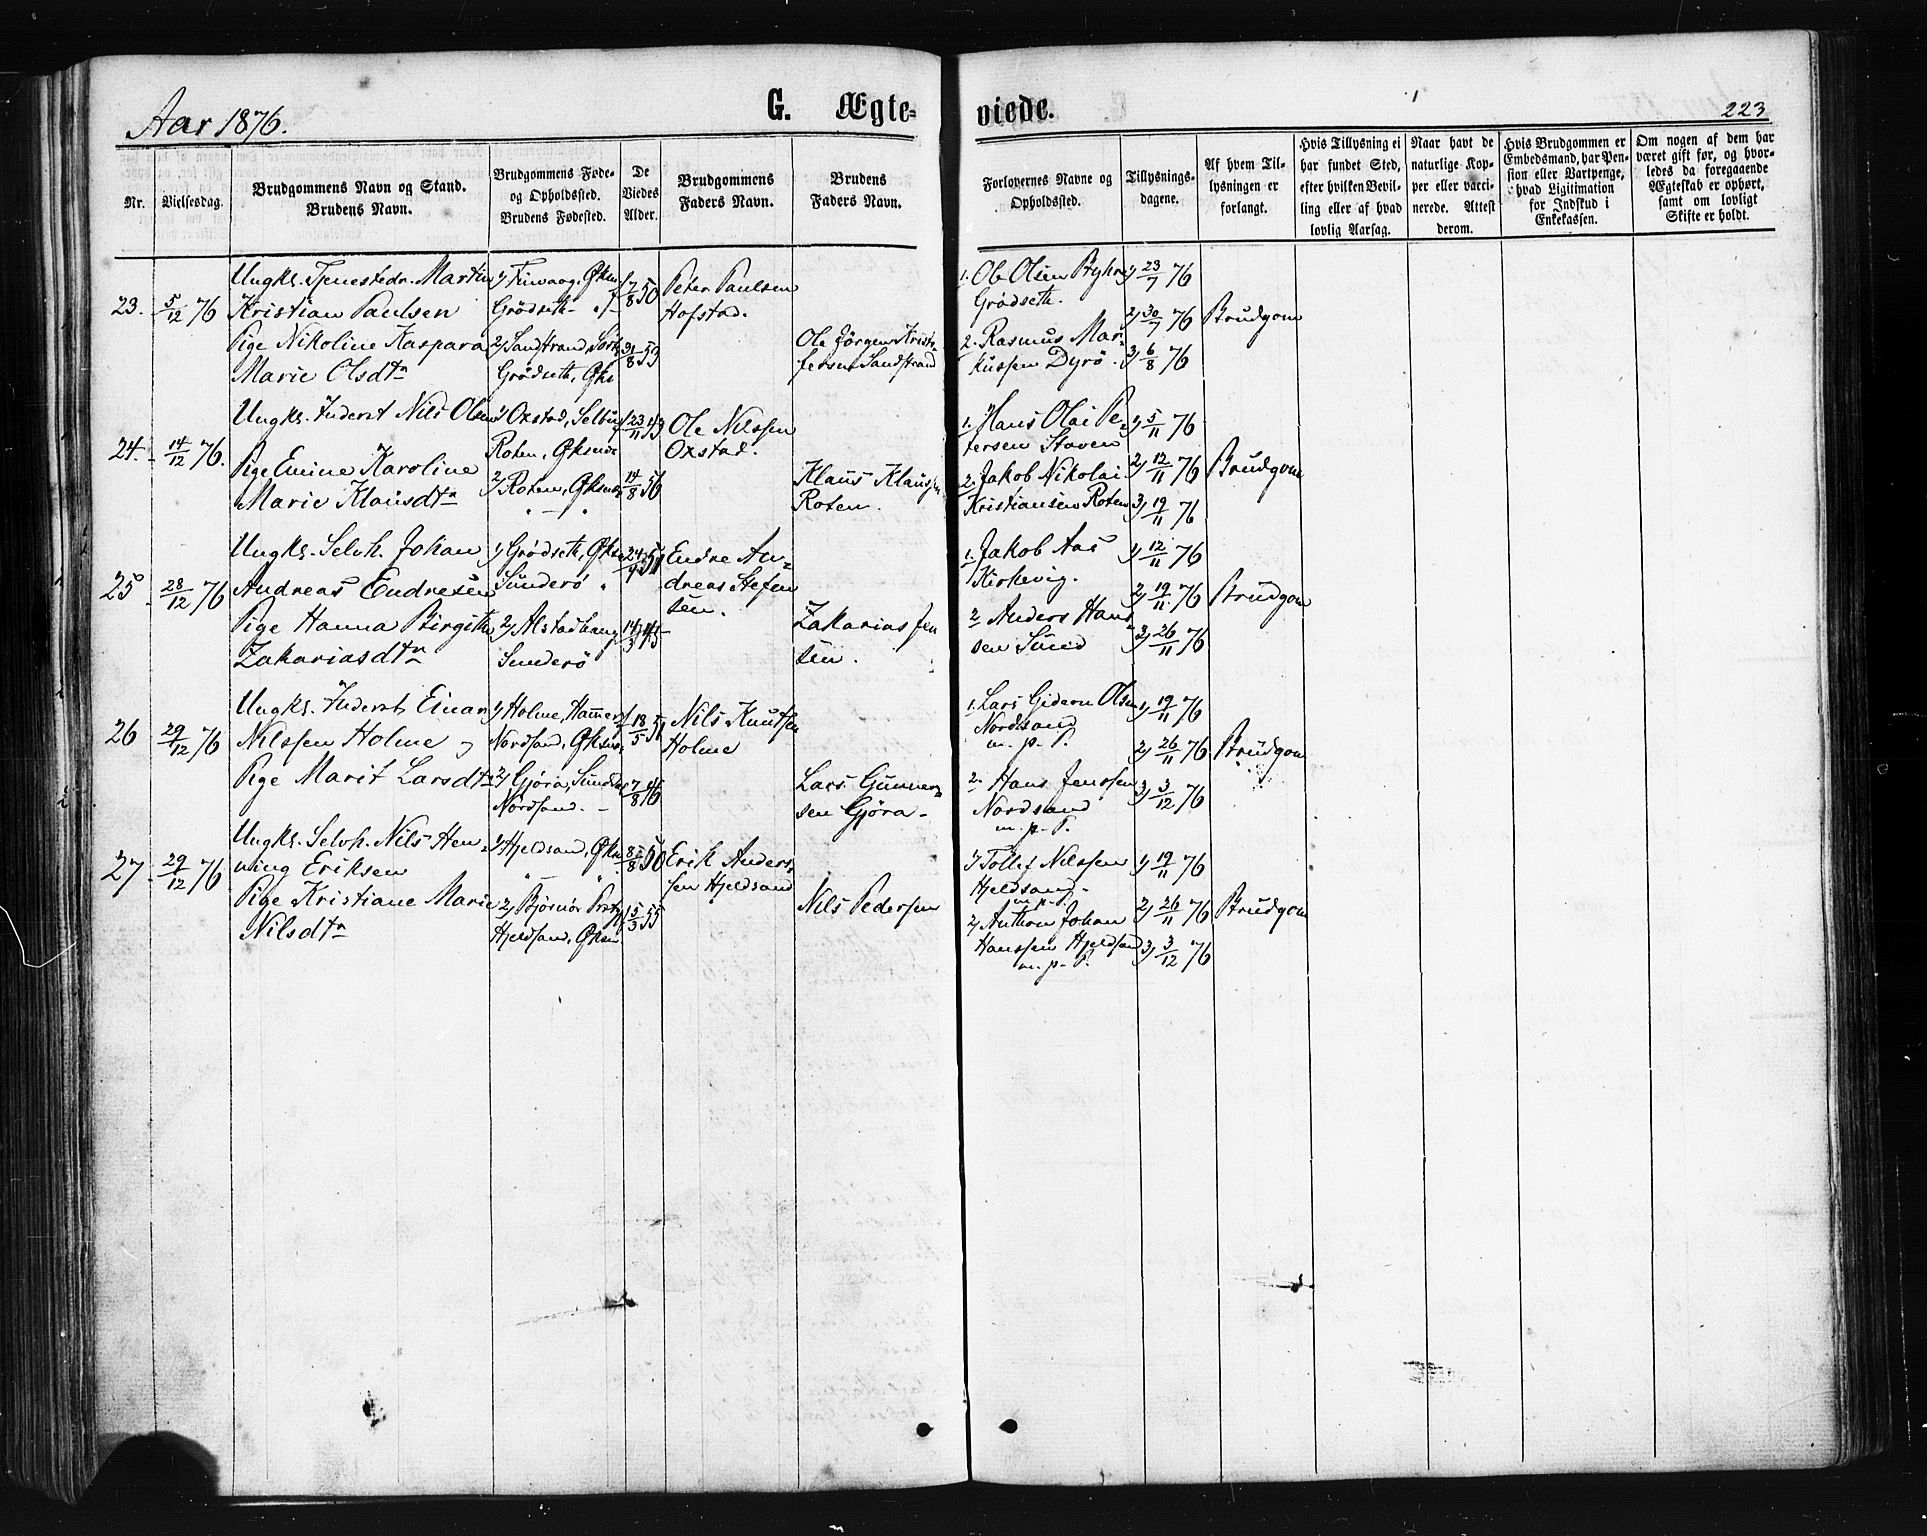 Aar 1876.
G. Ægte-
viede.
223
Nr.
Vielsesdag.
Brudgommens Navn og Stand.
Brudens Navn.
Brudgommens Føde-
og Opholdssted.
Brudens Fødested.
De
Viedes
Alder.
Brudgommens
Faders Navn.
Brudens
Faders Navn.
Forlovernes Navne og
Opholdssted.
Tillysnings-
dagene.
Af hvem Til-
lysningen er
forlangt.
Hvis Tillysning ei
har fundet Sted,
efter hvilken Bevil-
ling eller af hvad
lovlig Aarsag.
Naar havt de
naturlige Kop-
per eller vacci-
nerede. Attest
derom.
Hvis Brudgommen er
Embedsmand, har Pen-
sion eller Vartpenge,
hvad Ligitimation
for Indskud i
Enkekassen.
Om nogen af dem har
været gift før, og hvor-
ledes da foregaaende
Ægteskab er ophørt,
samt om lovligt
Skifte er holdt.
23.
5/12 76
Ungk. Tjenestedr. Martin
Kristian Paulsen
Pige Nikoline Kaspara
Marie Olsdtr
Grødseth
2) Sandstrand, Sort
Grødseth, Øksn
7/8 50
31/8 53
Peter Paulsen
Hofstad.
Ole Jørgen Krist-
fersen Sandstrand
1. Ole Olsen
Grødseth.
2. Rasmus Mar-
kussen Dyrø.
1) 23/7 76
2) 30/7 76
3) 6/8 76
Brudgom
24.
14/12 76.
Ungk. Inderst Nils Olsen
Pige Emine Karoline
Marie Klausdtr
1) Oxstad, Selbu
Roten, Øksnæs
2) Roten, Øksnæs
23/11 43
14/8 56
Ole Nilssen
Oxstad.
Klaus Klaussen
Roten.
1. Hans Olai Pe-
tersen Staven
2. Jakob Nikolai
Kristiansen Roten
1) 5/11 76
2) 12/11 76
3) 19/11 76
Brudgom
25
28/12 76
Ungk. Selvh. Johan
Andreas Endresen
Pige Hanna Birgithe
Zakariasdtr
1) Grødseth, Øksn
Sunderø
2) Alstadhaug
Sunderø
24/9 51
14/3 45
Endre An-
dreas Stefen
sen.
Zakarias Jen
sen.
1. Jakob Aas
Kirkevig.
2 Anders Hans
sen Sund
1) 12/11 76
2) 19/11 76
3) 26/11 76
Brudgom
26
29/12 76
Ungk. Inderst Einar
Nilssen Holme og
Pige Marit Larsdtr
1) Holme, Hammer
Nordsand, Øksnæs
2) Gjøra, Sunddal
Nordsand.
18/5 51
7/8 46
Nils Knutsen
Holme
Lars Gunner-
sen Gjøra
1. Lars Gideon Olsen
Nordsand
m. p. P.
2. Hans Jenssen
Nordsand
m. p. P.
1) 19/11 76
2) 26/11 76
3) 3/12 76
Brudgom
27
29/12 76
Ungk. Selvh. Nils Hen-
ning Eriksen
Pige Kristiane Marie
Nilsdtr
1) Hjeldsand, Øksn
2) Bjørnør
Hjeldsand, Øksn
8/8 50
5/3 55
Erik Anders-
sen Hjeldsand
Nils Pedersen
1) Tollef Nilssen
Hjeldsand
m. p. P.
2) Anthon Johan
Hanssen Hjeldsand
m. p. P.
1) 19/11 76
2) 26/11 76
3) 3/12 76
Brudgom